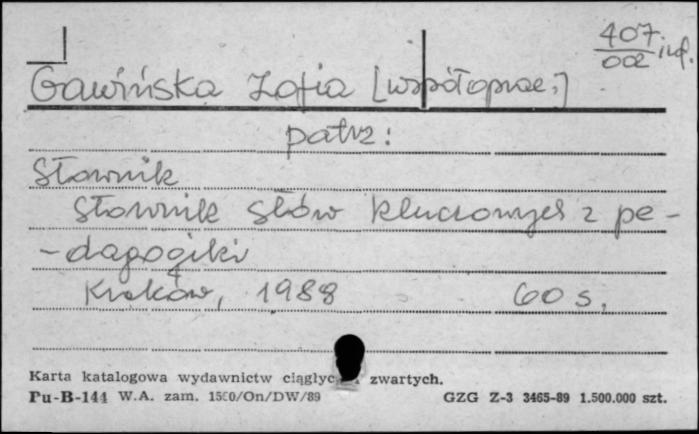 407
002 ind.
Gawińska Zofia [współoprac.]
patrz:
Słownik
Słownik słów kluczowych z pe-
-dagogiki
Kraków, 1988 60 s.
Karta katalogowa wydawnictw ciągłyc zwartych.
Pu-B-144 W.A. zam. 1500/On/DW/89 GZG Z-3 3465-89 1.500.000 szt.